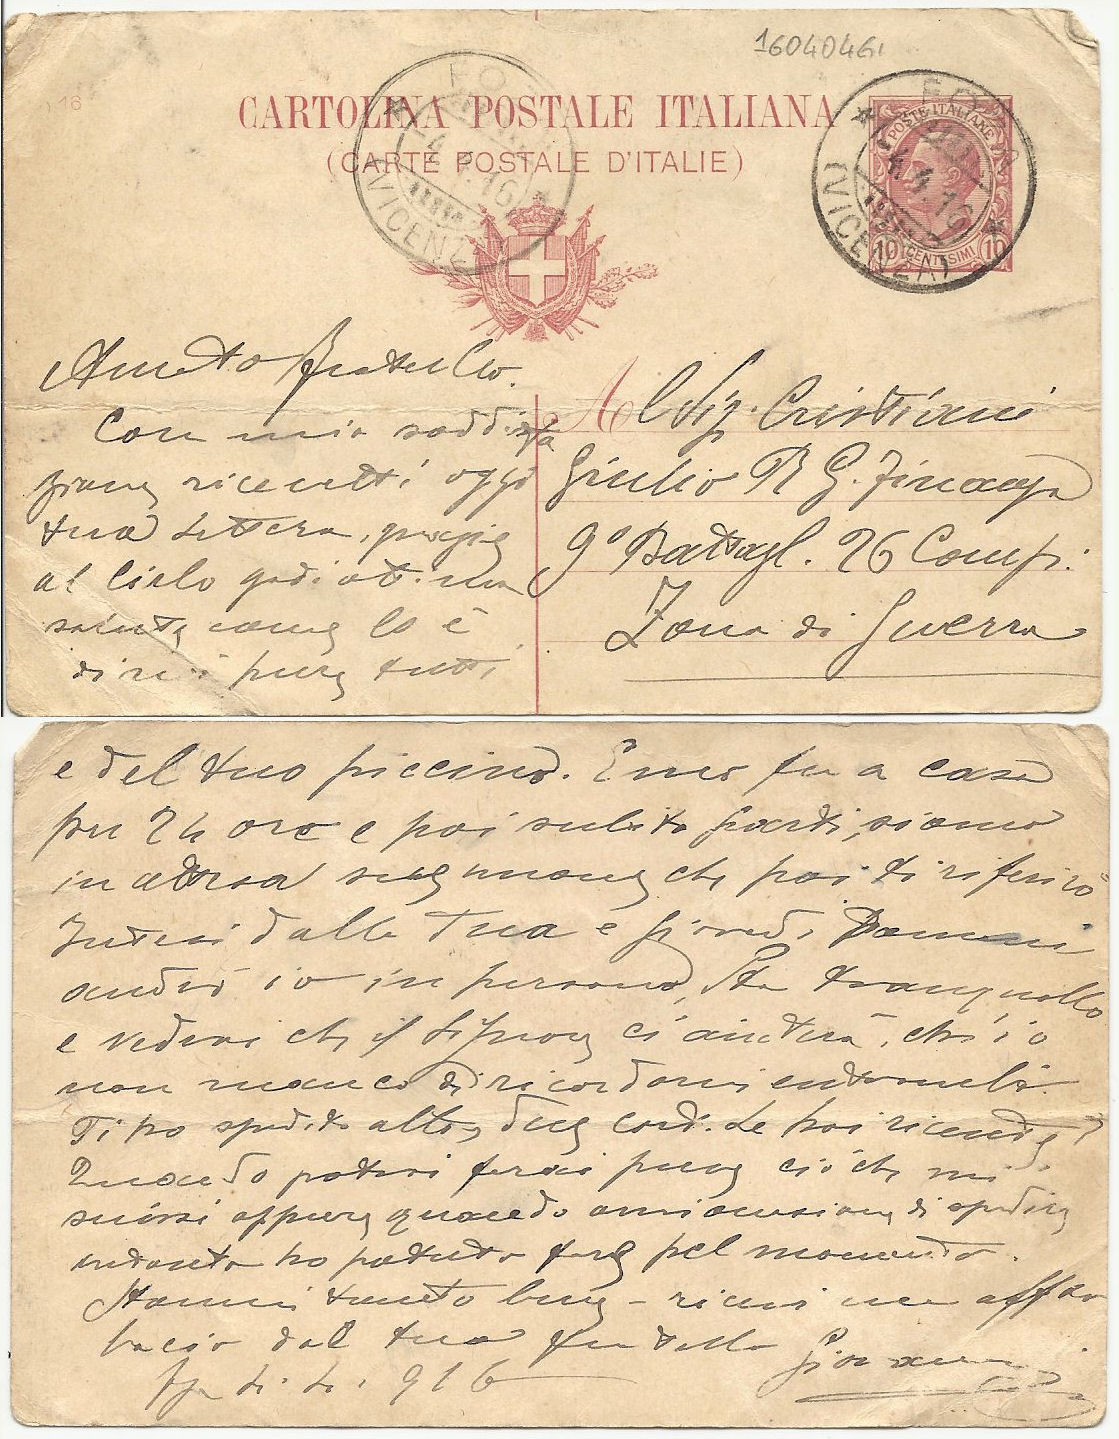 16040461
CARTOLINA POSTALE ITALIANA
(CARTE POSTALE D'ITALIE)
POSTE ITALIANE
10 CENTESIMI 10
4.4.16
(VICENZA)
4.4.16
(VICENZA)
16
Amato fratello.
Con mia soddisfa
zione ricevetti oggi
tua lettera,
al Cielo godi ottima
salute come lo è
di noi pure tutti
Al Sig. Cristiani
Giulio R G. Finanza
9° Battagl. 26 Comp.
Zona di Guerra
e del tuo piccino. fu a casa
per 24 ore e poi subito partì, siamo
in attesa sue nuove che poi ti riferirò
Intesi dalla Tua e giovedì
andrò io in persona, Sta tranquillo
e vedrai che il Signore ci aiuterà, ch'io
non manco di ricordarvi entrambi.
Ti ho spedito altre due cart. Le hai ricevute?
Quando potrai farai pure ciò che mi
oppure quando di spedire
intanto ho potuto fare pel momento.
Stammi tanto bene - ricevi un aff.mo
bacio dal tuo fratello Giovanni
4.4.916